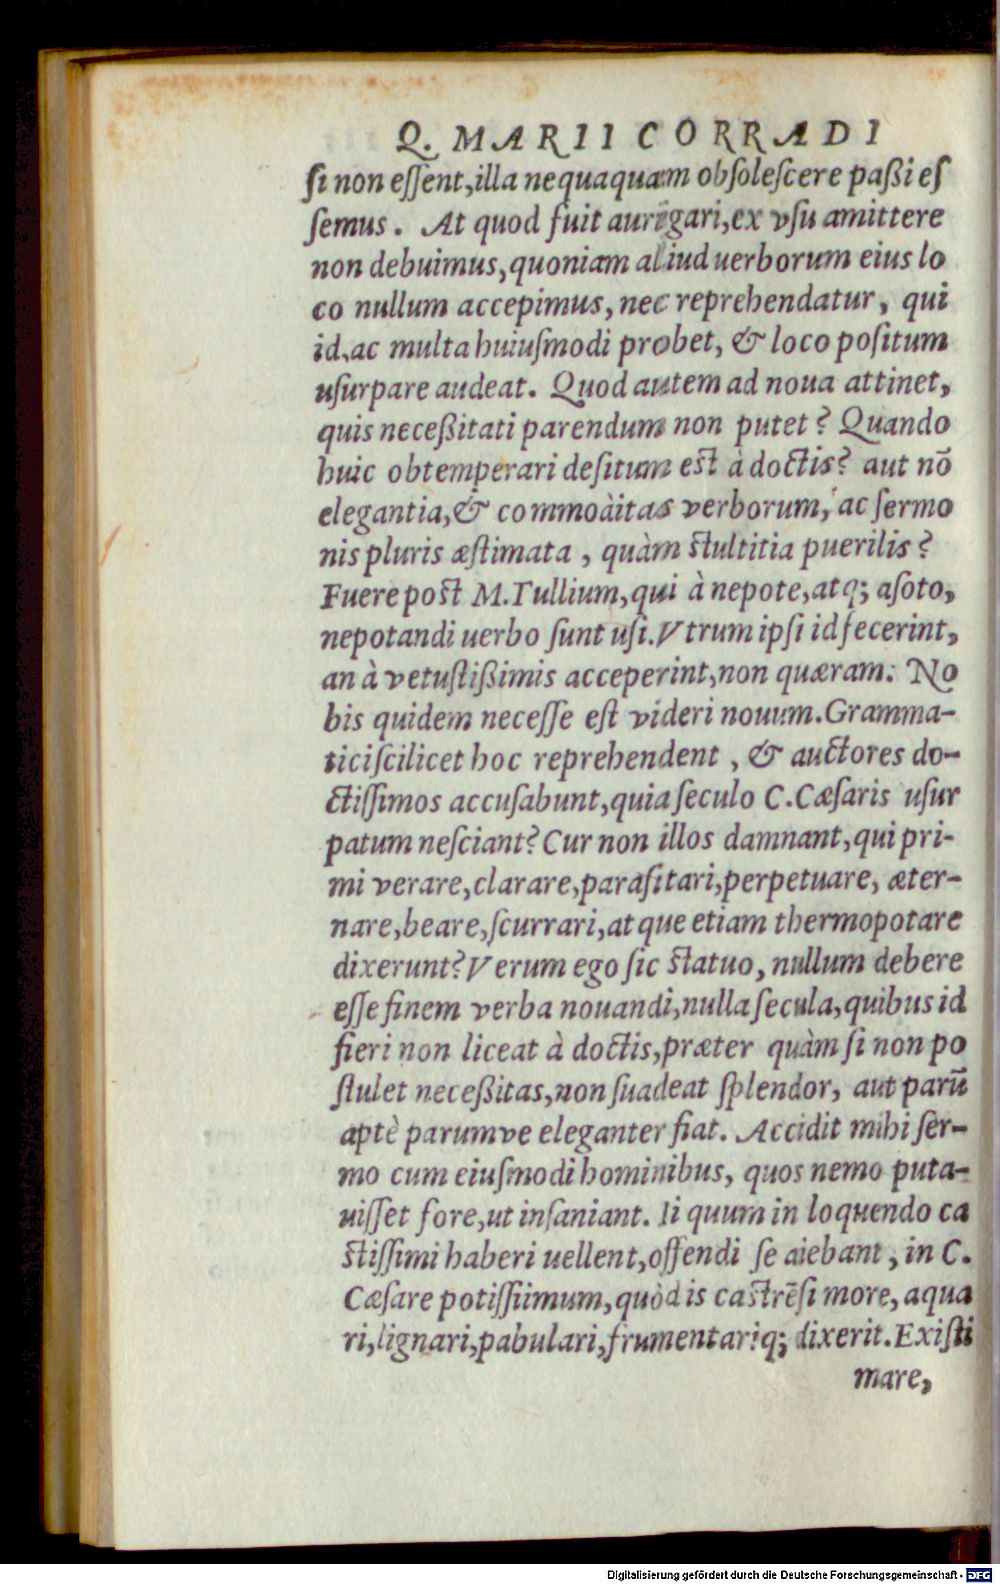 Q. MARII CORRADI
ſi non eſſent, illa nequaquam obſoleſcere paßi eſ
ſemus. At quod fuit aurigari, ex vſu amittere
non debuimus, quoniam aliud uerborum eius lo
co nullum accepimus, nec reprehendatur, qui
id, ac multa huiuſmodi probet, & loco poſitum
uſurpare audeat. Quod autem ad noua attinet,
quis neceßitati parendum non putet? Quando
huic obtemperari deſitum eſt à doctis? aut nō
elegantia, & commoditas verborum, ac ſermo
nis pluris æſtimata, quàm ſtultitia puerilis?
Fuere poſt M. Tullium, qui à nepote, atq; aſoto,
nepotandi uerbo ſunt uſi. Vtrum ipſi id fecerint,
an à vetuſtißimis acceperint, non quæram. No
bis quidem neceſſe eſt videri nouum. Gramma-
tici ſcilicet hoc reprehendent, & auctores do-
ctiſſimos accuſabunt, quia ſeculo C. Cæſaris uſur
patum neſciant? Cur non illos damnant, qui pri-
mi verare, clarare, paraſitari, perpetuare, æter-
nare, beare, ſcurrari, atque etiam thermopotare
dixerunt? Verum ego ſic ſtatuo, nullum debere
eſſe finem verba nouandi, nulla ſecula, quibus id
fieri non liceat à doctis, præter quàm ſi non po
ſtulet neceßitas, non ſuadeat ſplendor, aut parū
aptè parumve eleganter fiat. Accidit mihi ſer-
mo cum eiuſmodi hominibus, quos nemo puta-
uiſſet fore, ut inſaniant. Ii quum in loquendo ca
ſtiſſimi haberi uellent, offendi ſe aiebant, in C.
Cæſare potiſſiimum, quòd is caſtrēſi more, aqua
ri, lignari, pabulari, frumentariq; dixerit. Exiſti
mare,
Digitalisierung gefördert durch die Deutsche Forschungsgemeinschaft - DFG